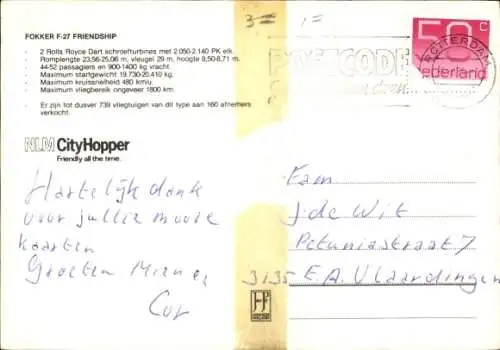 FOKKER F-27 FRIENDSHIP
- 2 Rolls Royce Dart schroefturbines met 2.050-2.140 PK elk.
- Romplengte 23,56-25,06 m, vleugel 29 m, hoogte 8,50-8,71 m.
- 44-52 passagiers en 900-1400 kg vracht.
- Maximum startgewicht 19.730-20.410 kg.
- Maximum kruissnelheid 480 km/u.
- Maximum vliegbereik ongeveer 1800 km.
Er zijn tot dusver 739 vliegtuigen van dit type aan 160 afnemers
verkocht.
NLM CityHopper
Friendly all the time.
Hartelijk dank
voor jullie mooie
kaarten
Groeten Mien en
Cor
3= 1=
POSTCODE
ROTTERDAM
50 c
nederland
Fam
J. de Wit
Petuniastraat 7
3135 E.A. Vlaardingen